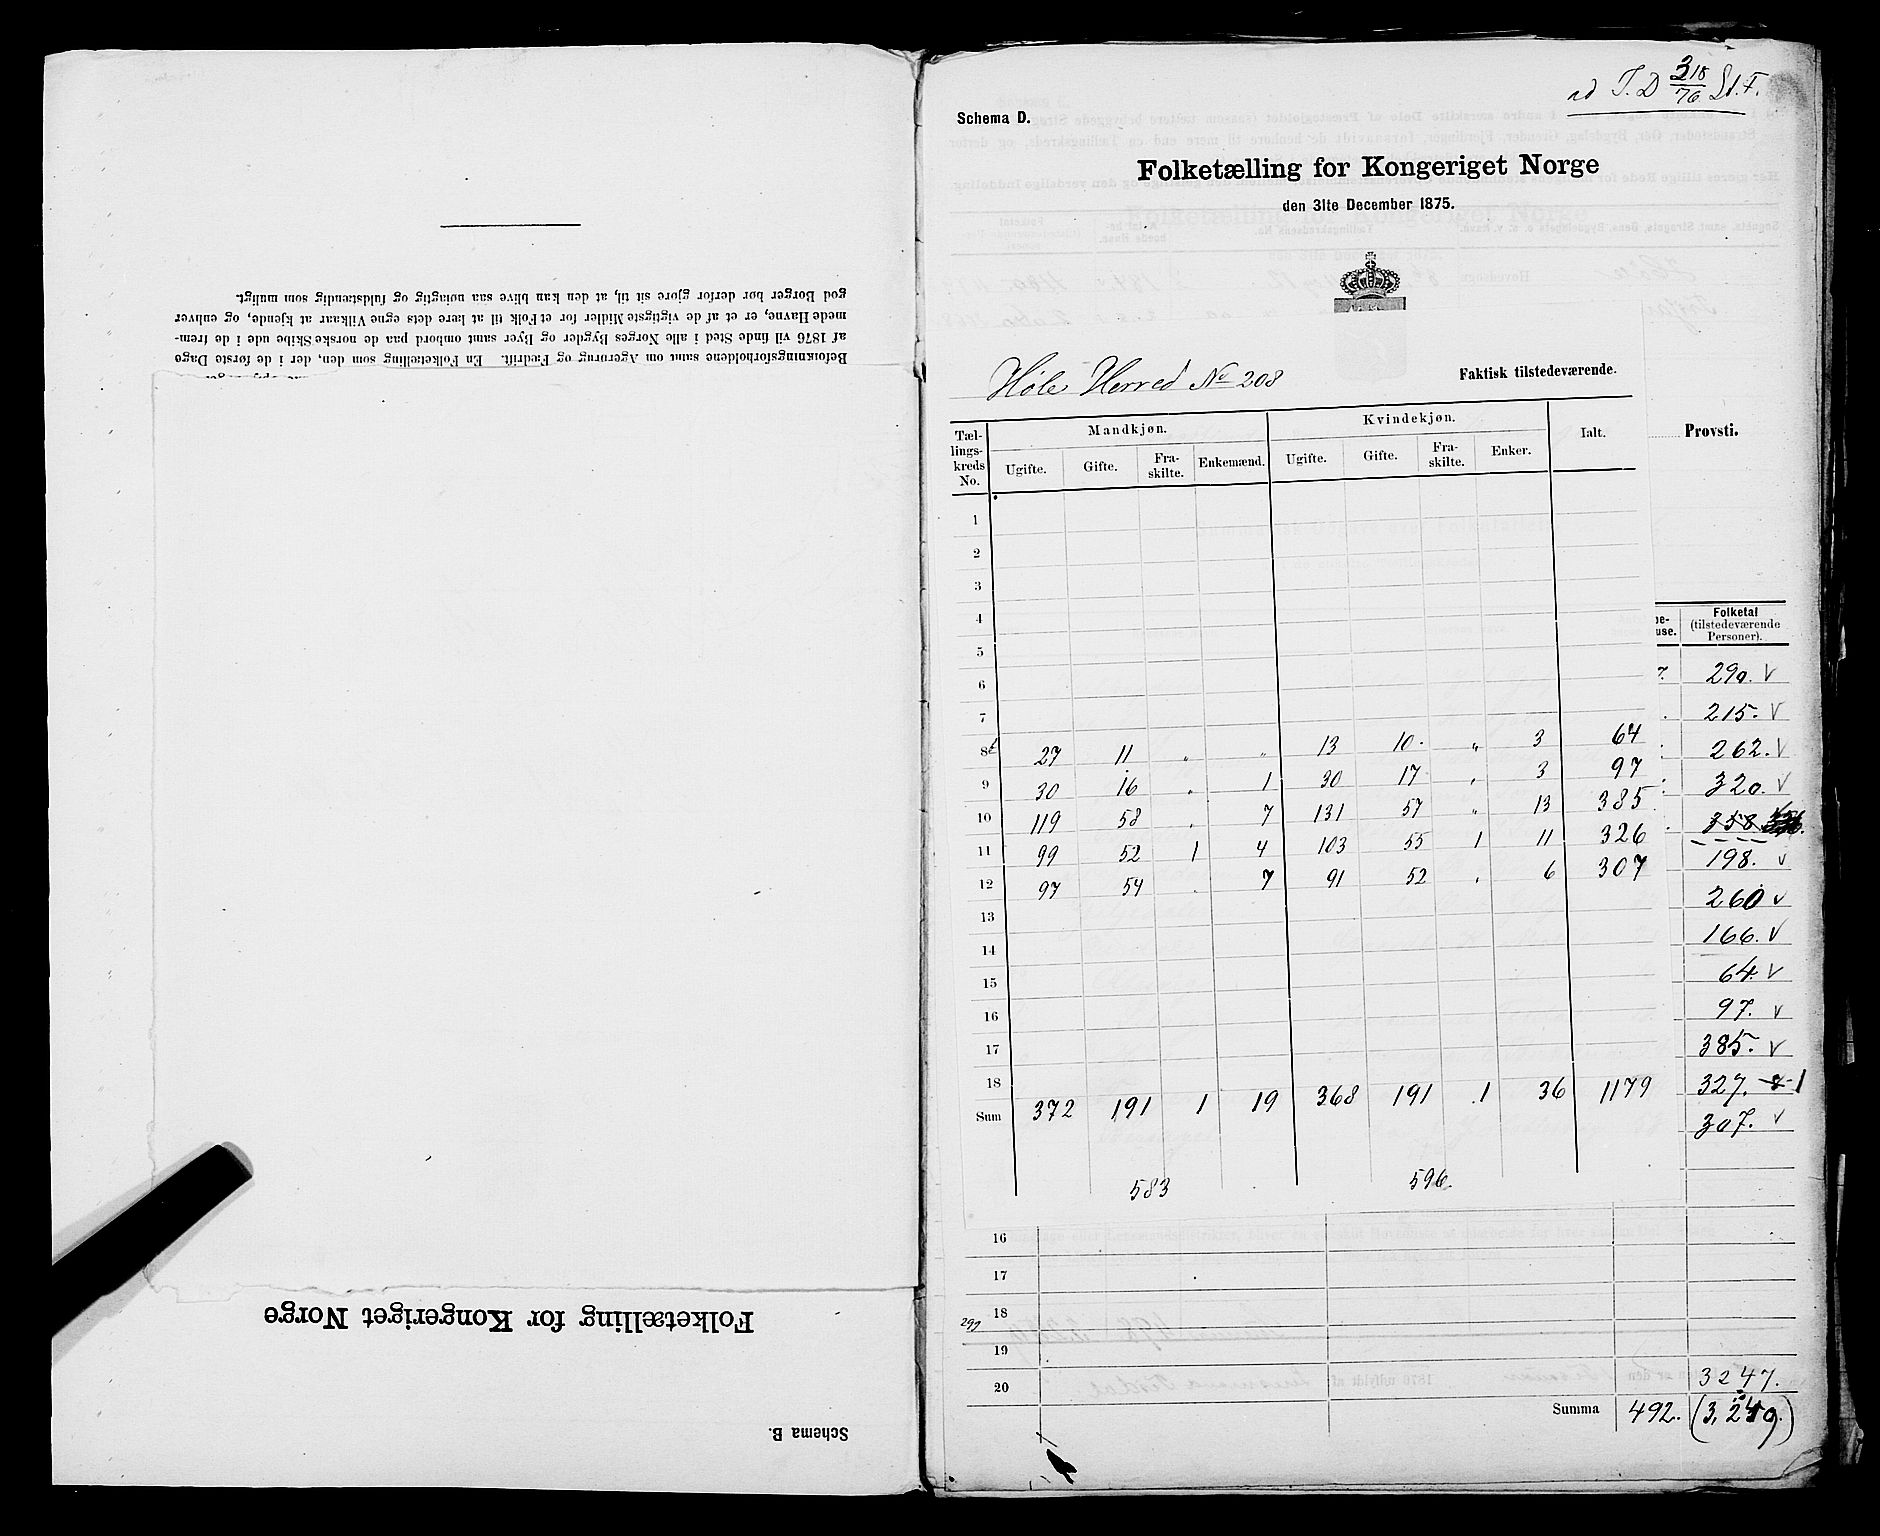 Befolkningsforholdene samt om Agerbrug og Fædrift. En Folketælling som den, der i de første Dage
af 1876 vil finde Sted i alle Norges Bygder og Byer samt ombord paa de norske Skibe ude i de frem-
mede Havne, er et af de vigtigste Midler for et Folk til at lære dets egne Vilkaar at kjende, og enhver
god Borger bør derfor gjøre sit til, at den kan blive saa nøiagtig og fuldstændig som muligt.
Schema B.
Folketælling for Kongeriget Norge
ad T.D 318/76 
Schema D.
Folketælling for Kongeriget Norge
den 31te December 1875.
Høle Herred No 208 Faktisk tilstedeværende.
Tæl-lings-kreds No. Mandkjøn. Kvindekjøn. Ialt.
Ugifte. Gifte. Fra-skilte. Enkemænd. Ugifte. Gifte. Fra-skilte. Enker.
1
2
3
4
5
6
7
8 27 11 „ „ 13 10 „ 3 64
9 30 16 „ 1 30 17 „ 3 97
10 119 58 „ 7 131 57 „ 13 385
11 99 52 1 4 103 55 1 11 326
12 97 54 . 7 91 52 . 6 307
13
14
15
16
17
18
Sum 372 191 1 19 368 191 1 36 1179
583 596
Provsti.
be-
use.
Folketal
(tilstedeværende
Personer).
7. 290. √
215. √
262. √
320. √
358
198. √
260 √
166. √
64. √
97. √
385. √
327. 1
307. √
16
17
18
19
20
3247.
Summa 492. (3,249.)